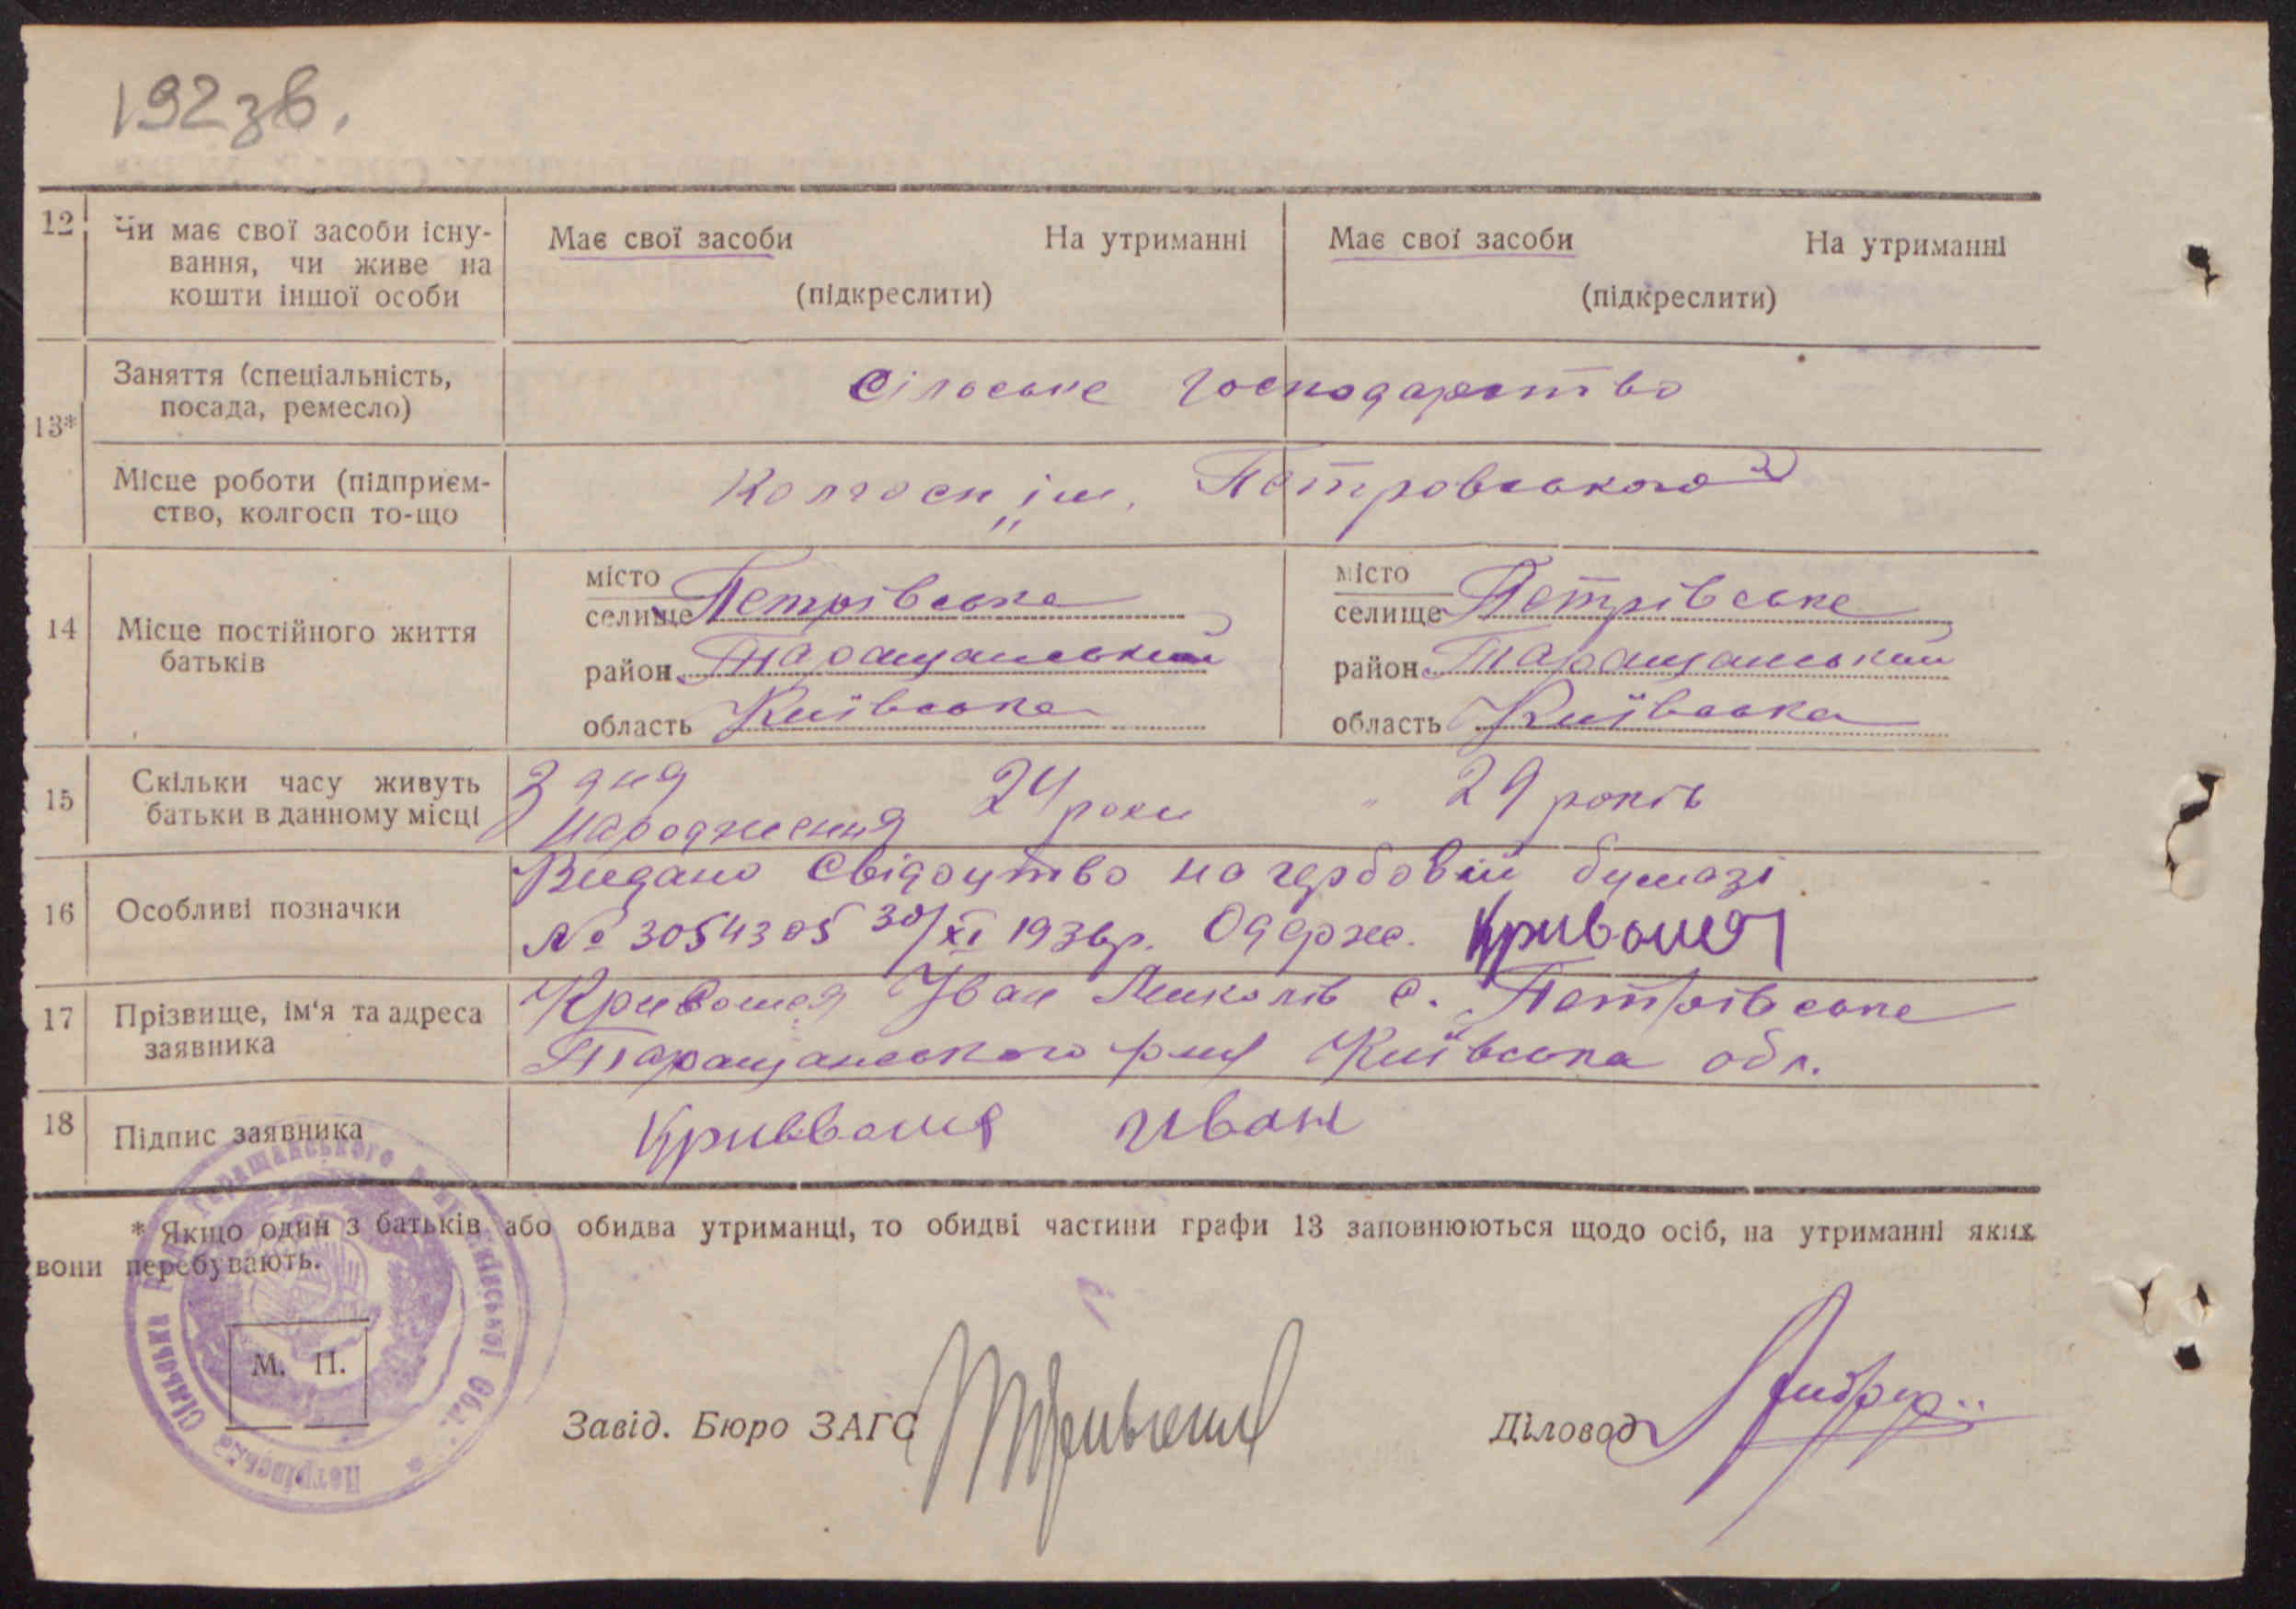 192 зв.
12 Чи має свої засоби існу-
вання, чи живе на
кошти іншої особи
Має свої засоби На утриманні
(підкреслити)
Має свої засоби На утриманні
(підкреслити)
13*
Заняття (спеціальність,
посада, ремесло)
Сільське господарство
Місце роботи (підприєм-
ство, колгосп то-що
Колгосп „ім. Петровського"
14 Місце постійного життя
батьків
місто
селище Петрівське
район Таращанський
область Київська
місто
селище Петрівське
район Таращанський
область Київська
15 Скільки часу живуть
батьки в данному місці
З дня
народження 24 роки " 29 років
16 Особливі позначки
Видано свідоцтво на гербовій бумазі
№ 3054305 30/XI 1936р. Одерж. Кривошея
17 Прізвище, ім'я та адреса
заявника
Кривошея Іван Миколів с. Петрівське
Таращанського р-ну Київська обл.
18 Підпис заявника
Кривошея Иван
* Якщо один з батьків або обидва утриманці, то обидві частини графи 13 заповнюються щодо осіб, на утриманні яких
вони перебувають.
Петрівська Сільська Рада Таращанського р-ну Київської Обл.
М. П.
Завід. Бюро ЗАГС
Діловод